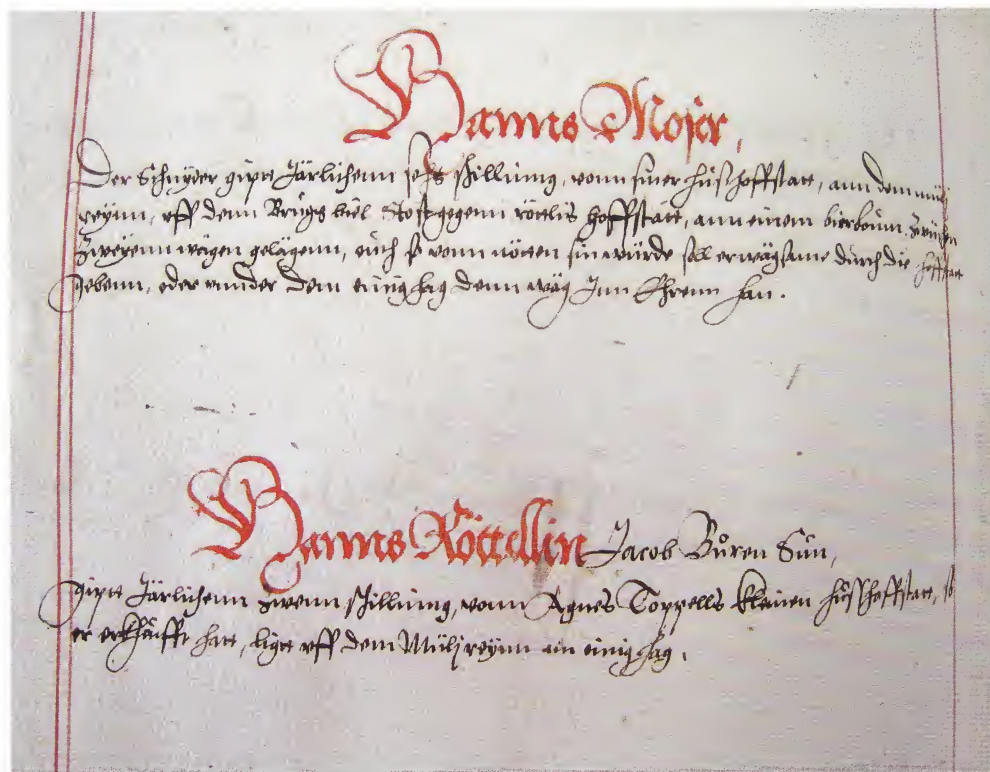 Hanns Moser,
Der Schnyder giptt Järlichenn sechs schilling, vonn siner hußhoffstatt, ann dem mülj
reynn, vff denn Brügg büel stost gegenn röttlis hoffstatt, ann einem bierboum, zwüschen
zweyenn wägen gelägenn, ouch so vonn nötten sin würde soll er wägsame durch die hoffstatt
gebenn, oder vnnder dem einighag denn wäg Inn Ehrenn han.
Hanns Röttellin Jacob Bůren Sůn,
giptt Järlichenn zwenn schilling, vonn Agnes Toppells kleinen hußhoffstatt, so
er erkhaufft hatt, ligtt vff dem Müljreynn am einighag.